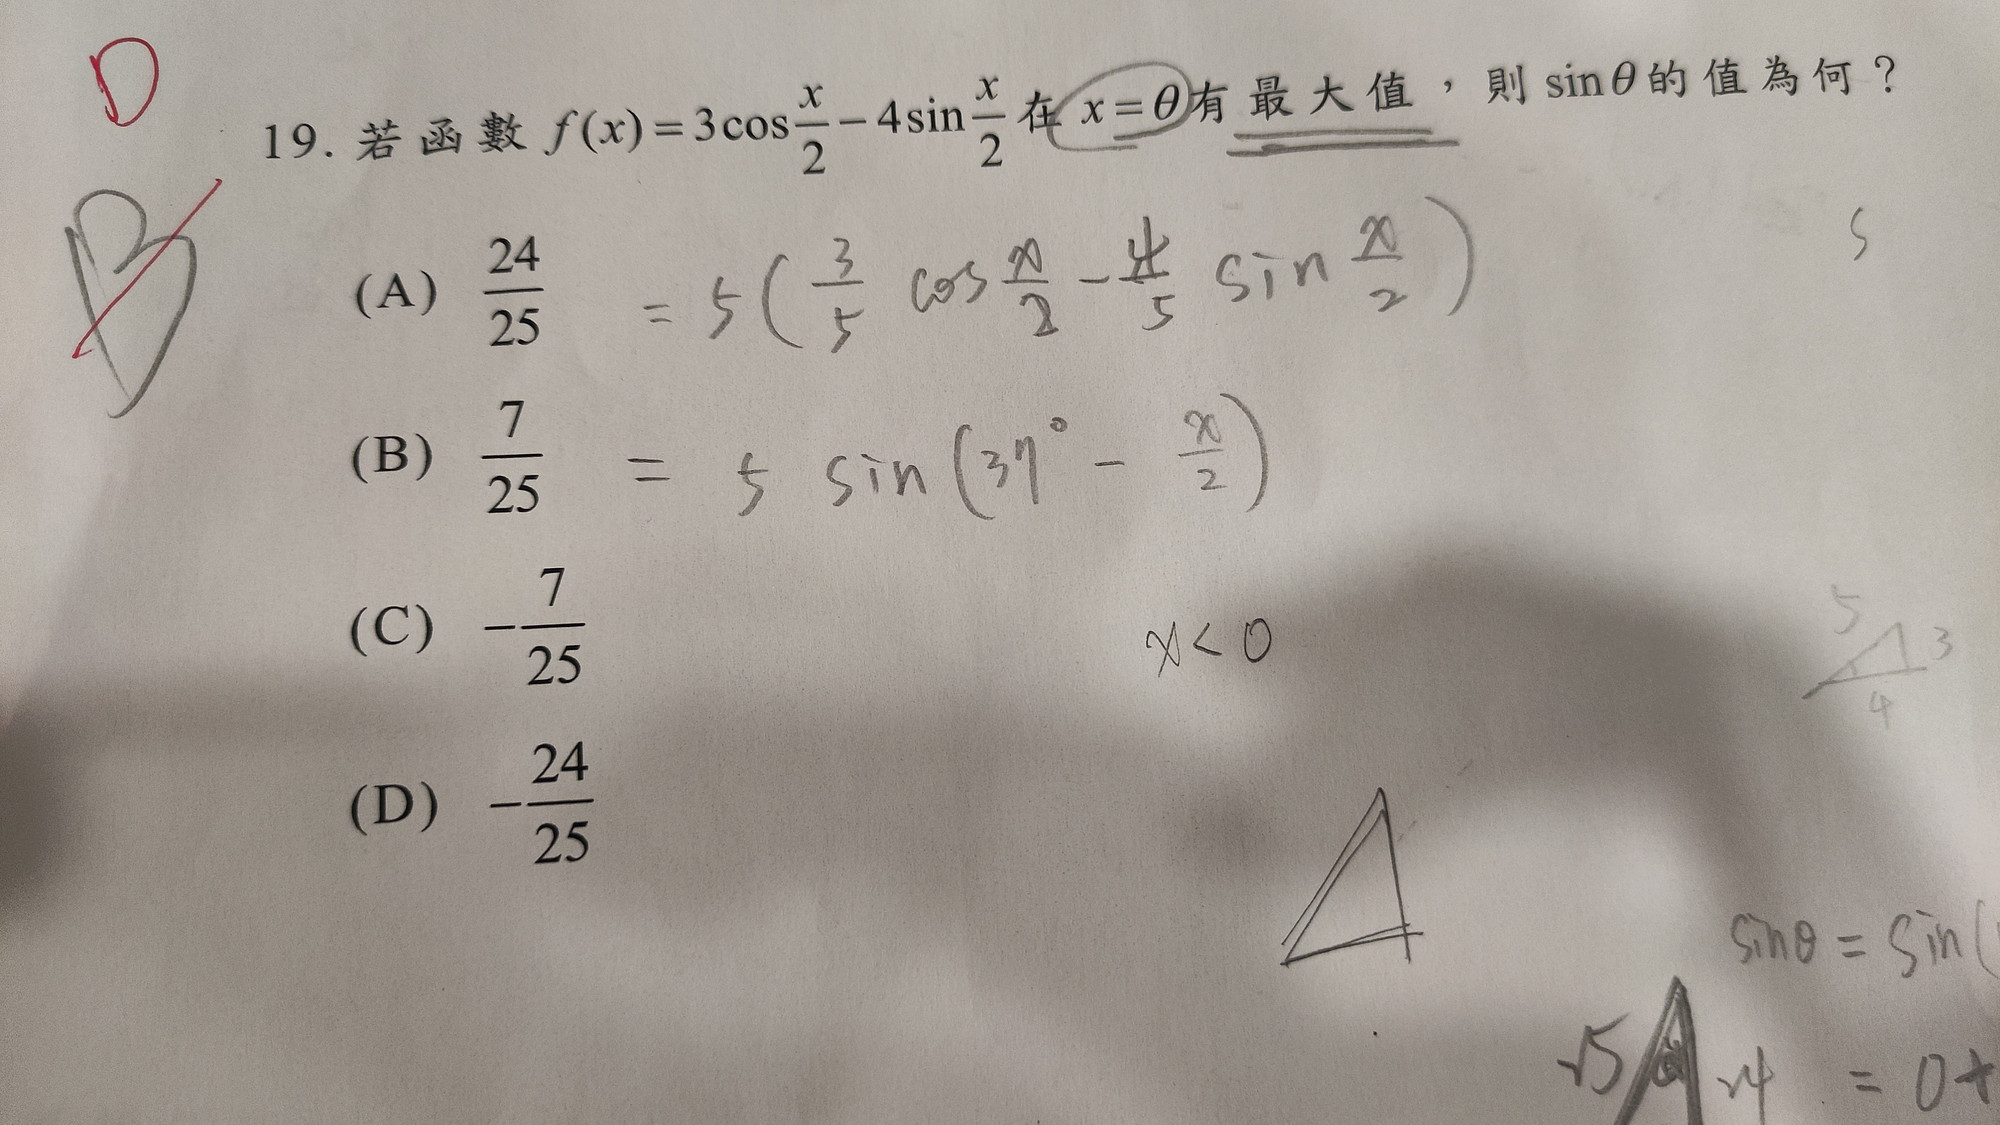 D
19. 若函數 f(x)=3cos x/2 − 4sin x/2 在 x=θ 有最大值，則 sinθ 的值為何？
B
(A) 24/25
= 5( 3/5 cos x/2 − 4/5 sin x/2 )
5
(B) 7/25
= 5 sin(37° − x/2)
(C) −7/25
x < 0
5 3
4
(D) −24/25
sinθ = sin(
√5 √4
= 0+